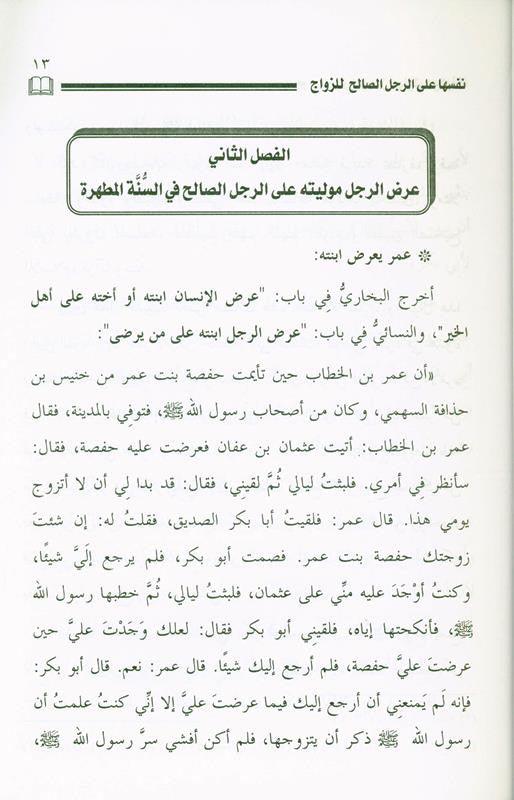 ١٣
نفسها على الرجل الصالح للزواج
الفصل الثاني
عرض الرجل موليته على الرجل الصالح في السُّنَّة المطهرة
* عمر يعرض ابنته:
أخرج البخاريُّ فِي باب: "عرض الإنسان ابنته أو أخته على أهل
الخير"، والنسائيُّ فِي باب: "عرض الرجل ابنته على من يرضى":
«أن عمر بن الخطاب حين تأيمت حفصة بنت عمر من خنيس بن
حذافة السهمي، وكان من أصحاب رسول الله ﷺ، فتوفِي بالمدينة، فقال
عمر بن الخطاب: أتيت عثمان بن عفان فعرضت عليه حفصة، فقال:
سأنظر فِي أمري. فلبثتُ ليالي ثُمَّ لقيني، فقال: قد بدا لي أن لا أتزوج
يومي هذا. قال عمر: فلقيتُ أبا بكر الصديق، فقلتُ له: إن شئتَ
زوجتك حفصة بنت عمر. فصمت أبو بكر، فلم يرجع إلَيَّ شيئًا،
وكنتُ أوْجَدَ عليه منِّي على عثمان، فلبثتُ ليالي، ثُمَّ خطبها رسول الله
ﷺ، فأنكحتها إياه، فلقيني أبو بكر فقال: لعلك وَجَدْتَ عليَّ حين
عرضتَ عليَّ حفصة، فلم أرجع إليك شيئًا. قال عمر: نعم. قال أبو بكر:
فإنه لَم يَمنعنِي أن أرجع إليك فيما عرضتَ عليَّ إلا إنِّي كنتُ علمتُ أن
رسول الله ﷺ ذكر أن يتزوجها، فلم أكن أفشي سرَّ رسول الله ﷺ،